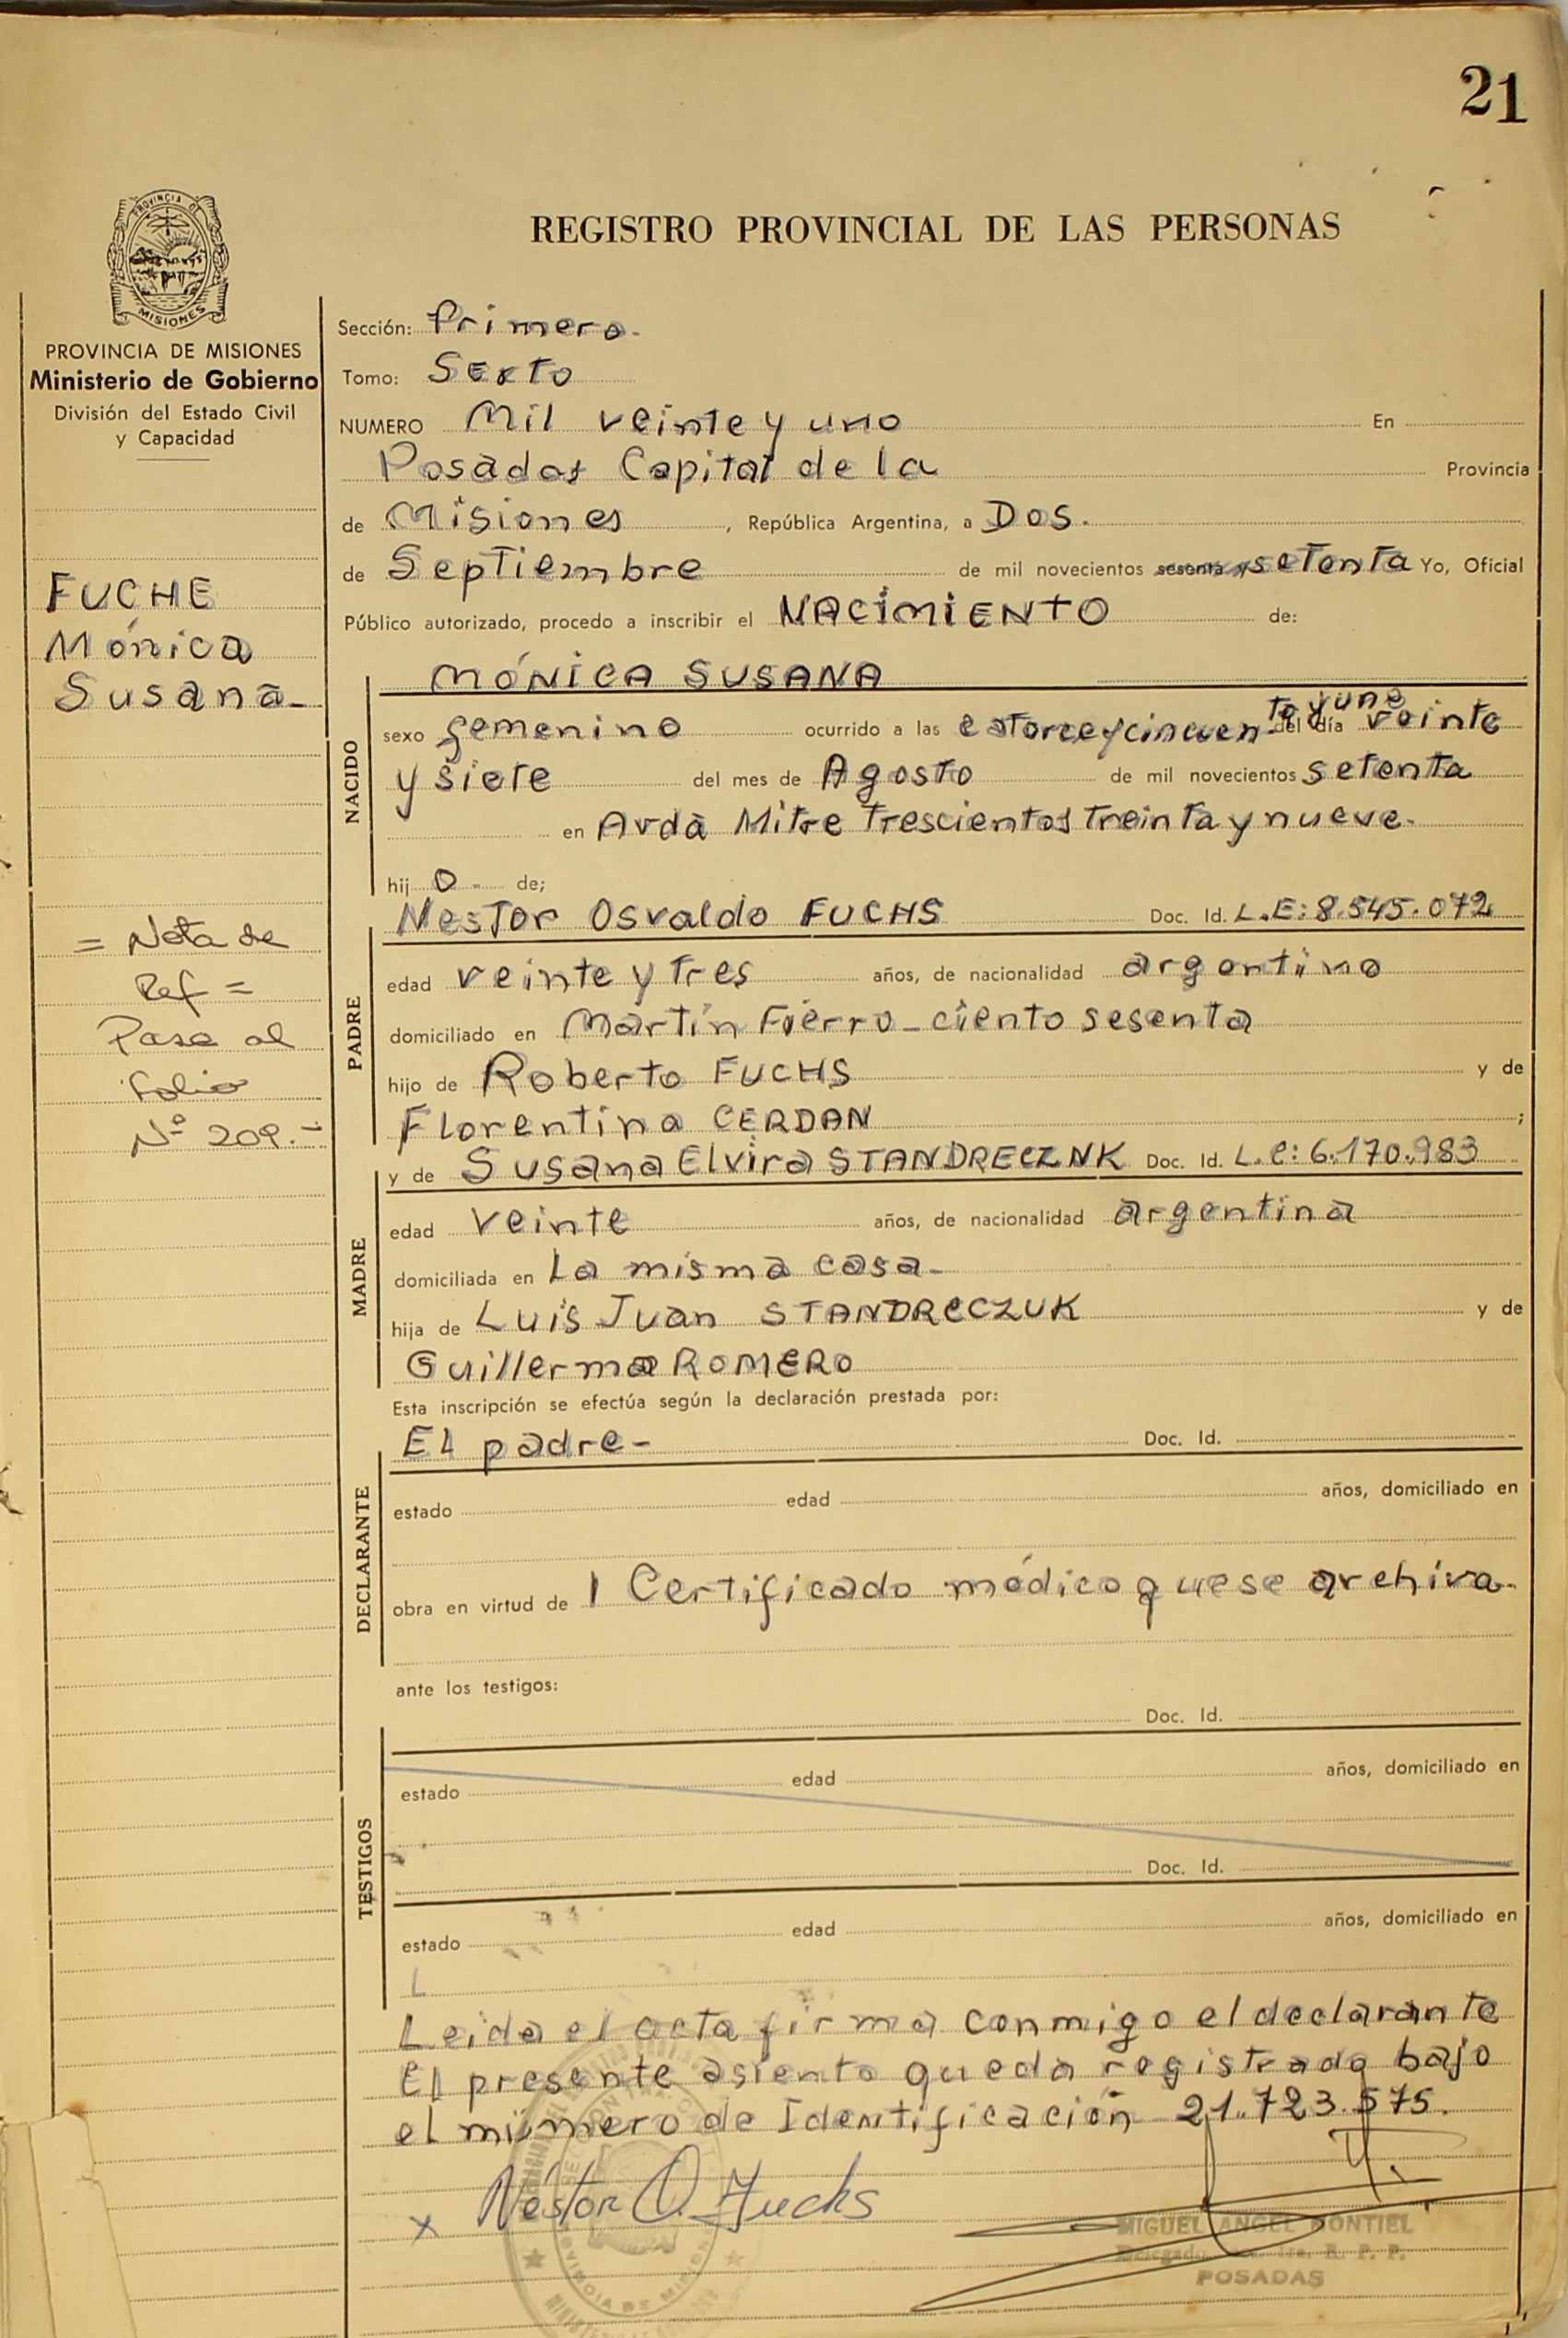 21
REGISTRO PROVINCIAL DE LAS PERSONAS
PROVINCIA DE MISIONES
Ministerio de Gobierno
División del Estado Civil
y Capacidad
FUCHE
Mónica
Susana-
= Nota de
Ref =
Pasa al
folio
Nº 209.-
Sección: Primera.
Tomo: Sexto
NUMERO Mil veinte y uno En
Posadas Capital de la Provincia
de Misiones, República Argentina, a Dos.
de Septiembre de mil novecientos sesenta y setenta Yo, Oficial
Público autorizado, procedo a inscribir el NACIMIENTO de:
NACIDO
MÓNICA SUSANA
sexo femenino ocurrido a las catorce y cincuenta y una del día veinte
y siete del mes de Agosto de mil novecientos setenta
en Avda Mitre trescientos treinta y nueve.
hij a de;
PADRE
Nestor Osvaldo FUCHS Doc. Id. L.E: 8.545.072
edad veinte y tres años, de nacionalidad argentino
domiciliado en Martín Fierro - ciento sesenta
hijo de Roberto FUCHS y de
Florentina CERDAN ;
MADRE
y de Susana Elvira STANDRECZNK Doc. Id. L.C: 6.170.983
edad veinte años, de nacionalidad argentina
domiciliada en La misma casa-
hija de Luis Juan STANDRECZUK y de
Guillerma ROMERO
Esta inscripción se efectúa según la declaración prestada por:
DECLARANTE
El padre- Doc. Id.
estado edad años, domiciliado en
obra en virtud de 1 Certificado médico que se archiva.
ante los testigos:
TESTIGOS
Doc. Id.
estado edad años, domiciliado en
Doc. Id.
estado edad años, domiciliado en
L
Leida el acta firma conmigo el declarante
El presente asiento queda registrado bajo
el número de Identificación 21.723.575.
x Néstor O. Fuchs
MIGUEL ANGEL MONTIEL
Delegado R. P. P.
POSADAS